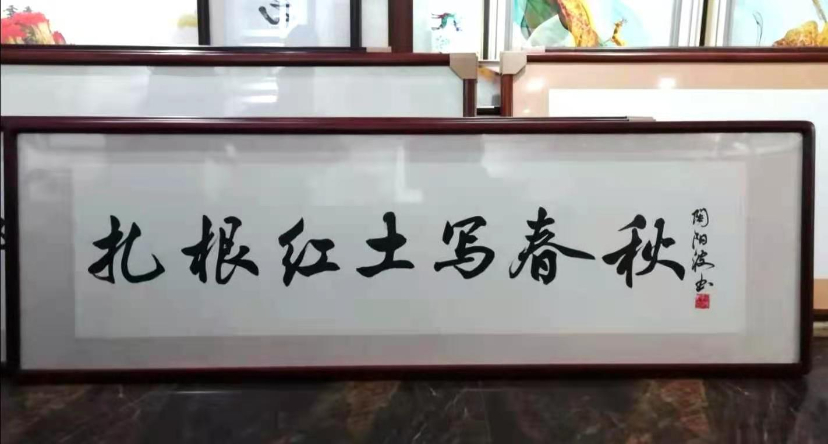 扎根红土写春秋
陶阳波书